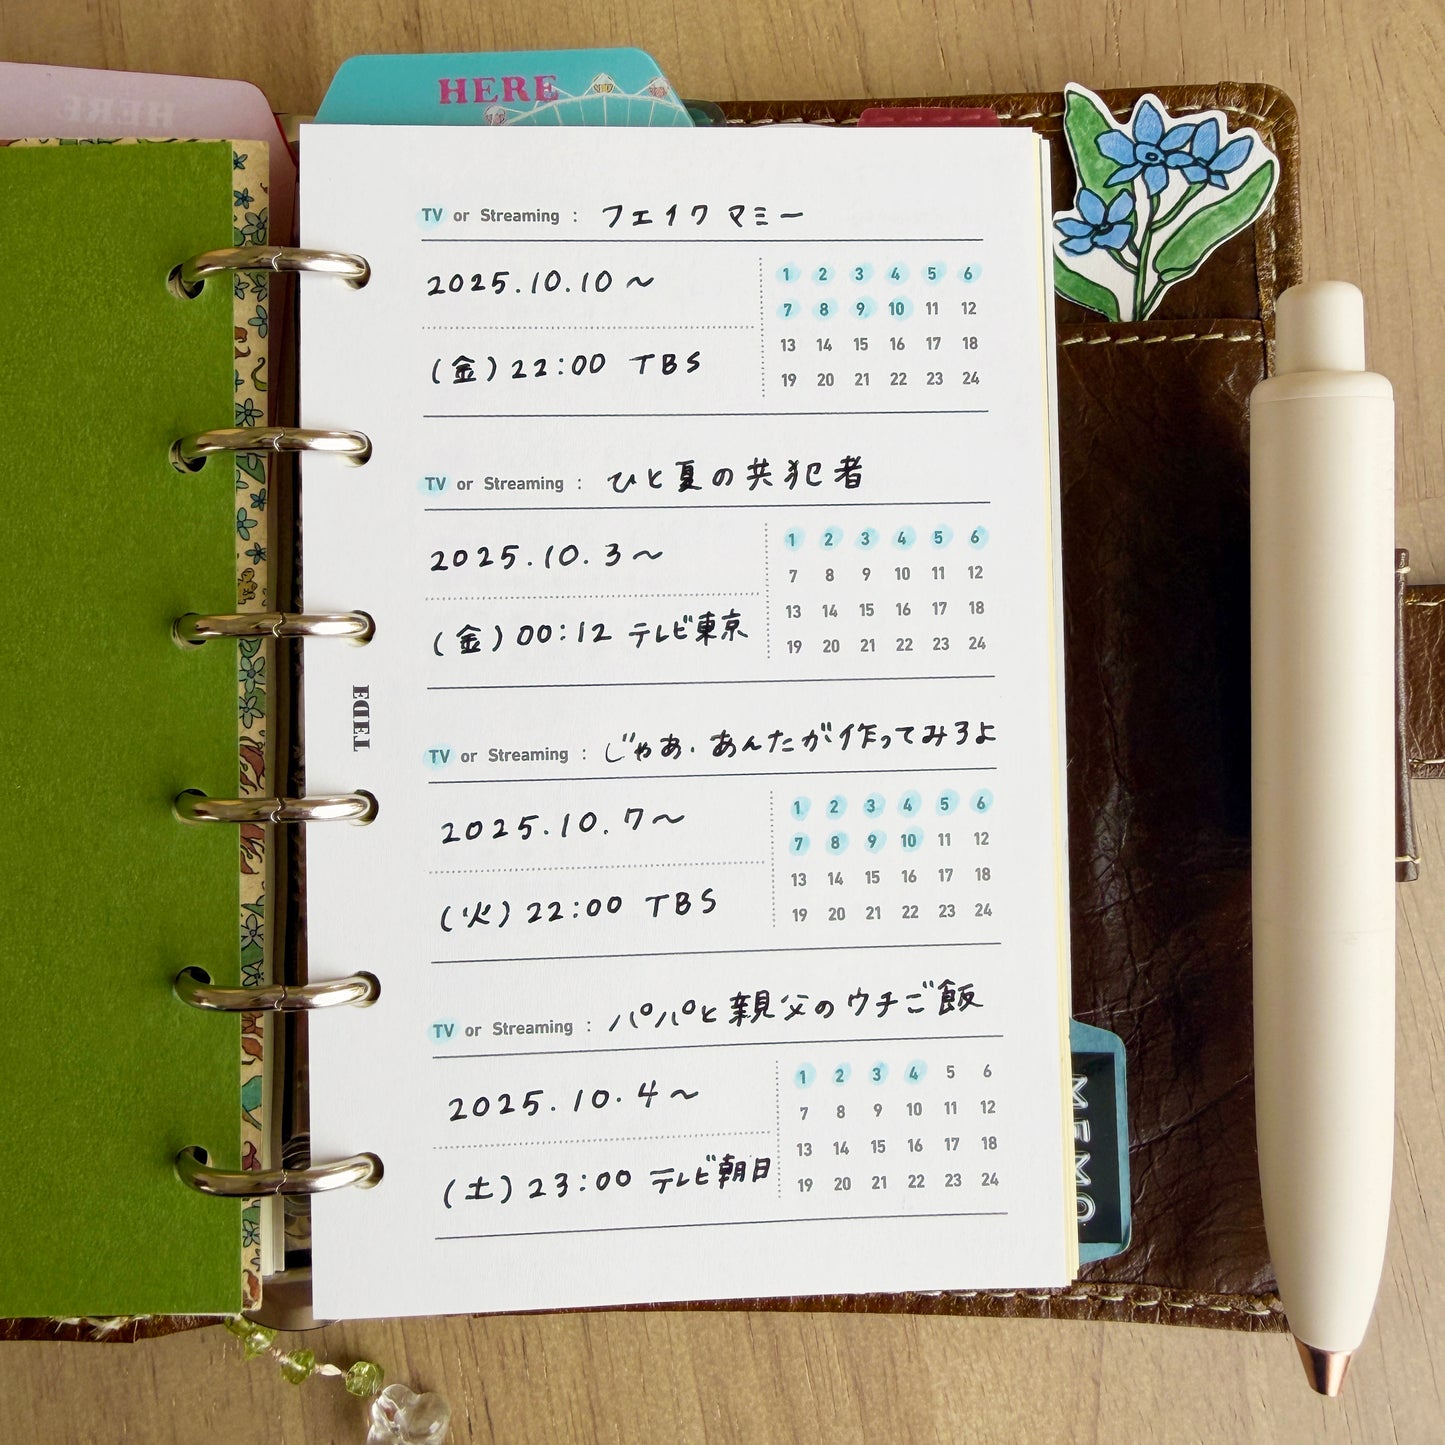 HERE
HERE
TV or Streaming : フェイクマミー
2025.10.10～
(金)22:00 TBS
1 2 3 4 5 6
7 8 9 10 11 12
13 14 15 16 17 18
19 20 21 22 23 24
TV or Streaming : ひと夏の共犯者
2025.10.3～
(金)00:12 テレビ東京
1 2 3 4 5 6
7 8 9 10 11 12
13 14 15 16 17 18
19 20 21 22 23 24
TV or Streaming : じゃあ、あんたが作ってみろよ
2025.10.7～
(火)22:00 TBS
1 2 3 4 5 6
7 8 9 10 11 12
13 14 15 16 17 18
19 20 21 22 23 24
TV or Streaming : パパと親父のウチご飯
2025.10.4～
(土)23:00 テレビ朝日
1 2 3 4 5 6
7 8 9 10 11 12
13 14 15 16 17 18
19 20 21 22 23 24
EDET
MEMO